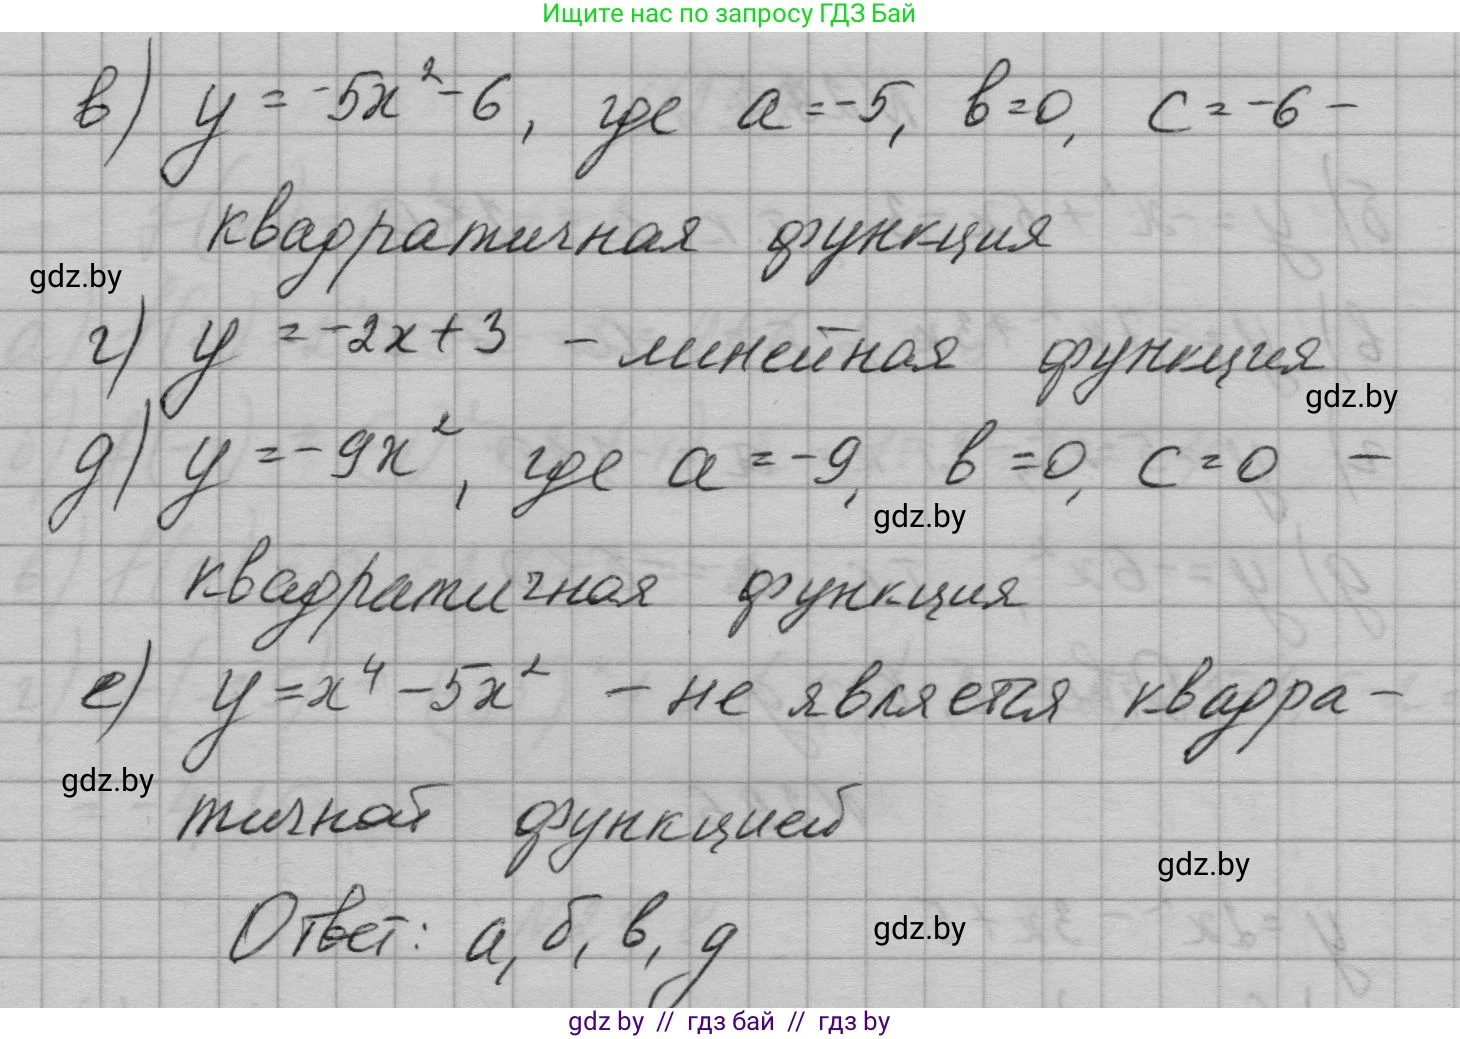 Ищите нас по запросу ГДЗ Бай
в) y = -5x² - 6, где a = -5, в = 0, c = -6 -
квадратичная функция
gdz.by
г) y = -2x + 3 - линейная функция
gdz.by
д) y = -9x², где a = -9, в = 0, c = 0 -
gdz.by
квадратичная функция
е) y = x⁴ - 5x² - не является квадра-
gdz.by
тичной функцией
gdz.by
Ответ: а, б, в, д
gdz.by
gdz by // гдз бай // гдз by